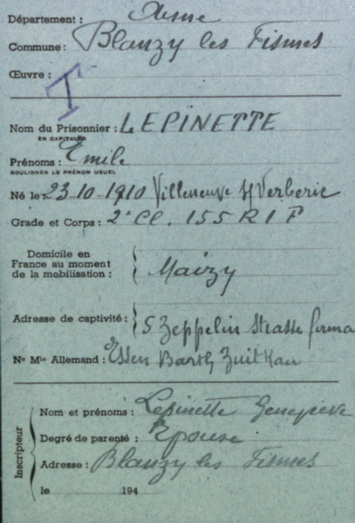 Département : Aisne
Commune : Blanzy les Fismes
Œuvre :
T
Nom du Prisonnier : LEPINETTE
EN CAPITALES
Prénoms : Emile
SOULIGNER LE PRÉNOM USUEL
Né le 23-10-1910 Villeneuve s/ Verberie
Grade et Corps : 2e Cl. 155 R I F
Domicile en
France au moment
de la mobilisation : Maizy
Adresse de captivité : 5 Zeppelin Strasse
No Mle Allemand : Essen
Inscripteur
Nom et prénoms : Lepinette Geneviève
Degré de parenté : Epouse
Adresse : Blanzy les Fismes
le 194